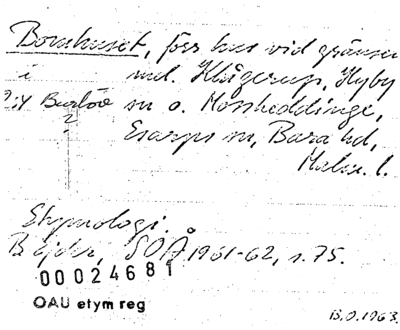 Bomhuset, förr hus vid gränsen
i mel. Klågerup, Hyby
Burlöv sn o. Mossheddinge,
?
Esarps sn, Bara hd,
Malm. l.
Etymologi.
B Ejder, SOÅ 1961-62, s. 75.
00024681
OAU etym reg
B.O. 1963.